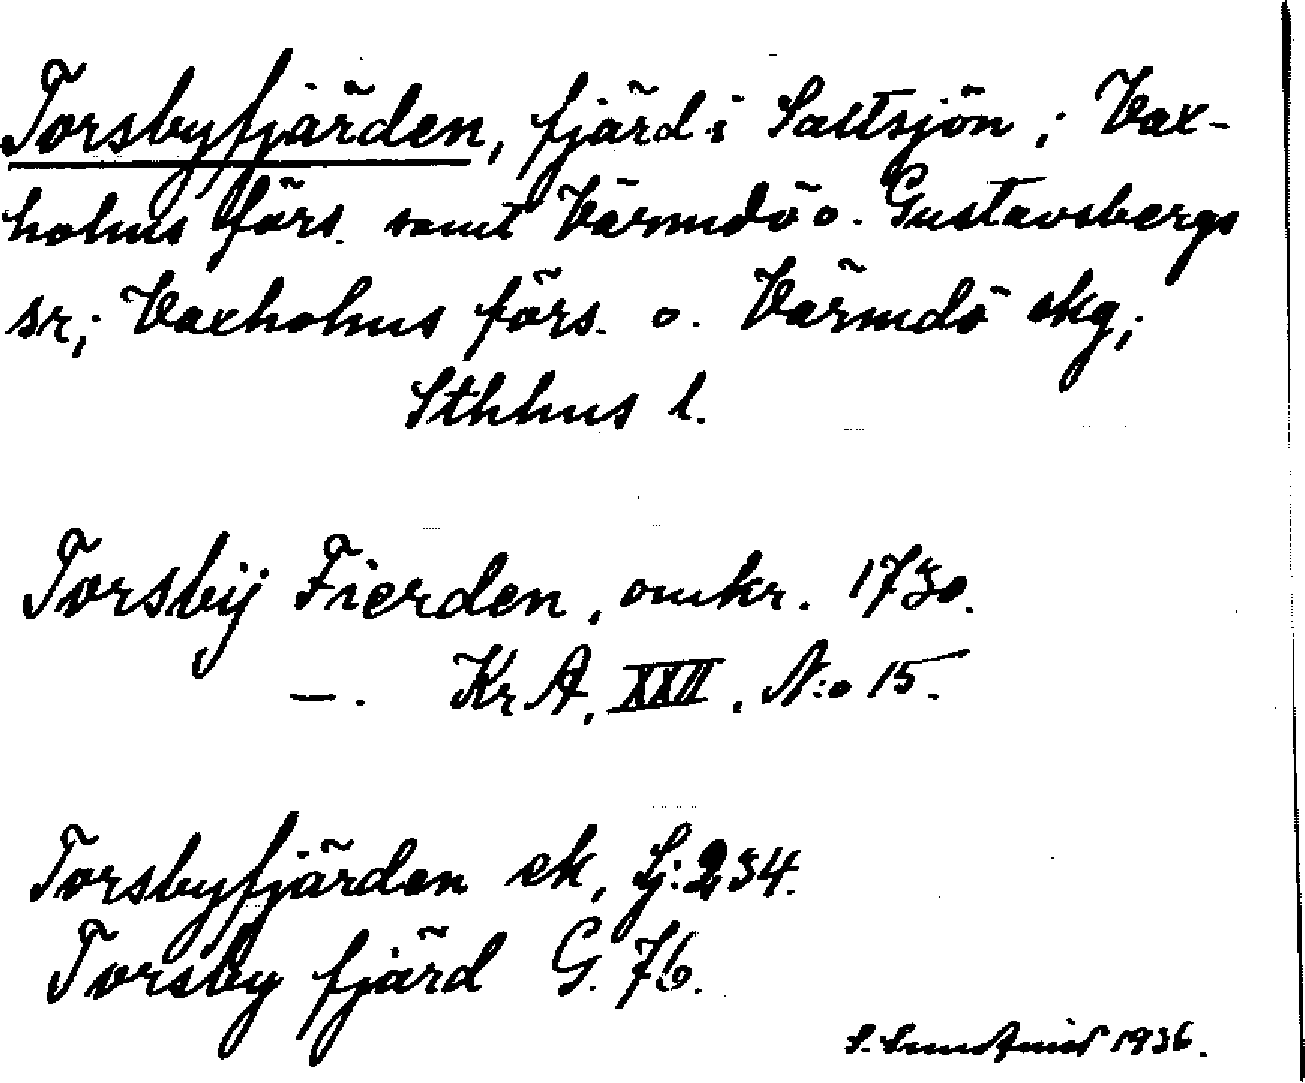 Torsbyfjärden, fjärd i Saltsjön; Vax-
holms förs. samt Värmdö o. Gustavsbergs
sr; Vaxholms förs. o. Värmdö skg;
Sthlms l.
Torsbÿ Fierden, omkr. 1730.
—. Kr A, XXII, N:o 15.
Torsbyfjärden ek, Lj: 234.
Torsby fjärd G. 76.
S. 1936.